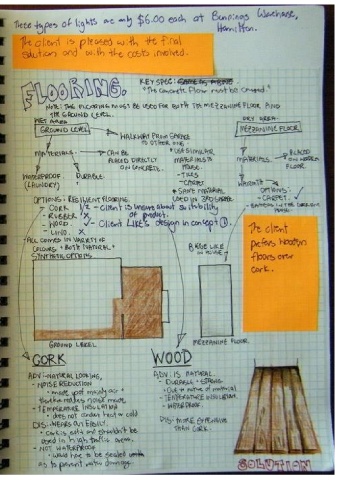 These types of lights are only $6.00 each at Bunnings Warehouse,
Hamilton.
The client is pleased with the final
solution and with the costs involved.
FLOORING.
KEY SPEC:
"The concrete floor must be covered."
NOTE: THE FLOORING MUST BE USED FOR BOTH THE MEZZANINE FLOOR AND
THE GROUND LEVEL.
WET AREA
GROUND LEVEL
WALKWAY FROM GARAGE
IS OTHER ONE
DRY AREA
MEZZANINE FLOOR
MATERIALS
CAN BE
PLACED DIRECTLY
ON CONCRETE.
USE SIMILAR
MATERIALS
TILES
CARPET
SAME MATERIAL
USED IN
MATERIALS
PLACED
ON WOODEN
FLOOR
WATERPROOF
(LAUNDRY)
DURABLE
WARMTH
OPTIONS:
CARPET
OPTIONS: RESILIENT FLOORING
- CORK
- Client is unsure about suitability
of product.
- RUBBER X
- WOOD
- Client likes design in concept
- LINO X
ALL COMES IN VARIETY OF
COLOURS + BOTH NATURAL +
SYNTHETIC OPTIONS
The client
prefers wooden
floors over
cork.
GROUND LEVEL
MEZZANINE FLOOR
CORK
ADV: - NATURAL LOOKING,
- NOISE REDUCTION
- TEMPERATURE INSULATION
- does not conduct heat or cold
DIS: - WEARS OUT EASILY.
- Cork is soft and shouldn't be
used in high traffic areas.
- NOT WATERPROOF
- would have to be sealed
as to prevent water damage.
WOOD
ADV: IS NATURAL
- DURABLE + STRONG
- TEMPERATURE INSULATION
- WATERPROOF
DIS: - MORE EXPENSIVE
THAN CORK.
SOLUTION